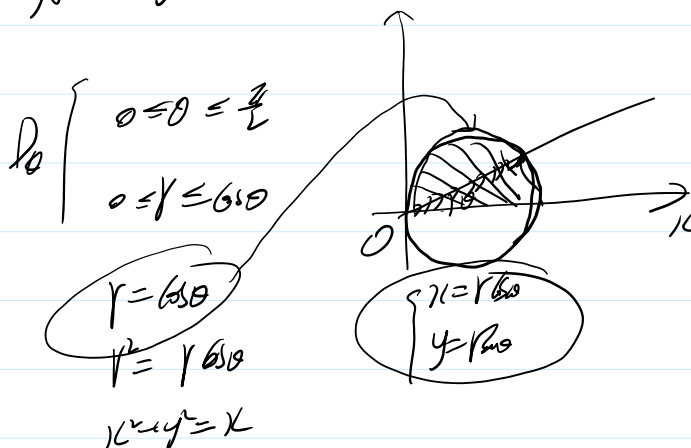 D₀ { 0 ≤ θ ≤ π/2
0 ≤ r ≤ cosθ
r = cosθ
r² = r cosθ
x² + y² = x
O
x
{ x = r cosθ
y = r sinθ